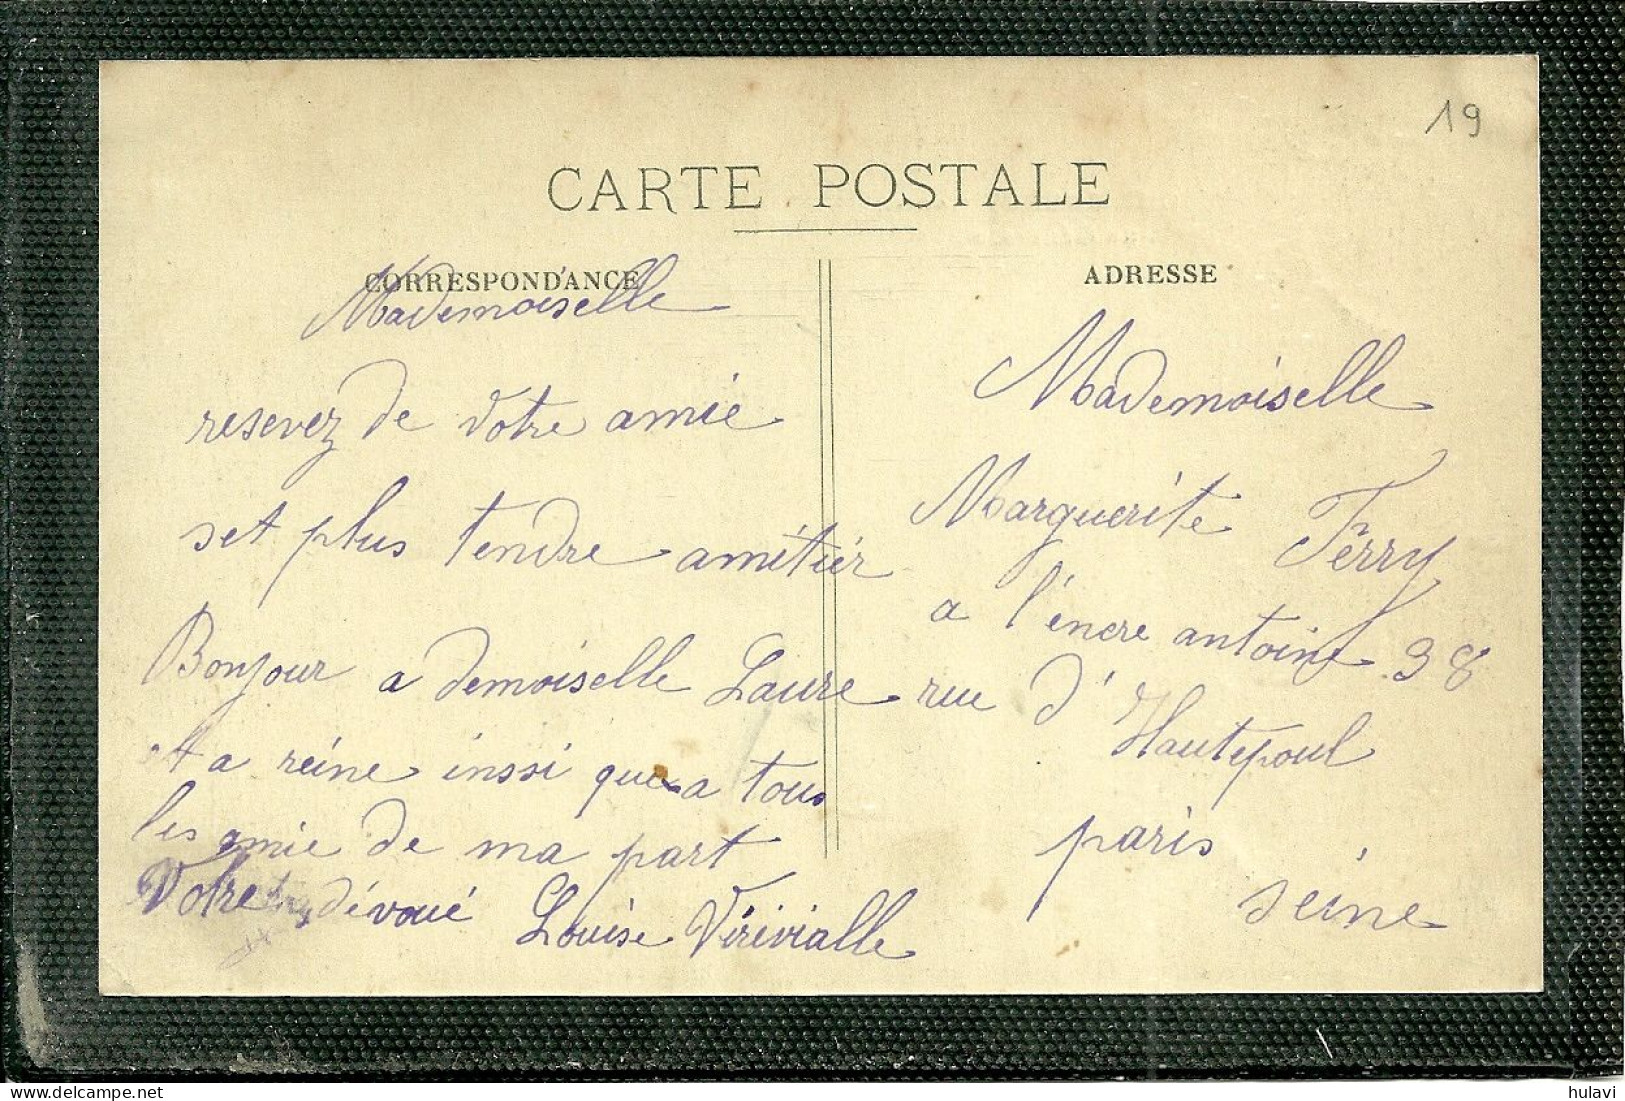 19
CARTE POSTALE
CORRESPONDANCE
Mademoiselle
resevez de votre amie
set plus tendre amétiér
Bonjour a demoiselle Laure
et a reine inssi que a tous
les amie de ma part
Votre dévoué Louise Vérivialle
ADRESSE
Mademoiselle
Marguerite Ferry
a l'encre antoine 38
rue d'Hautepoul
paris
seine
hulavi